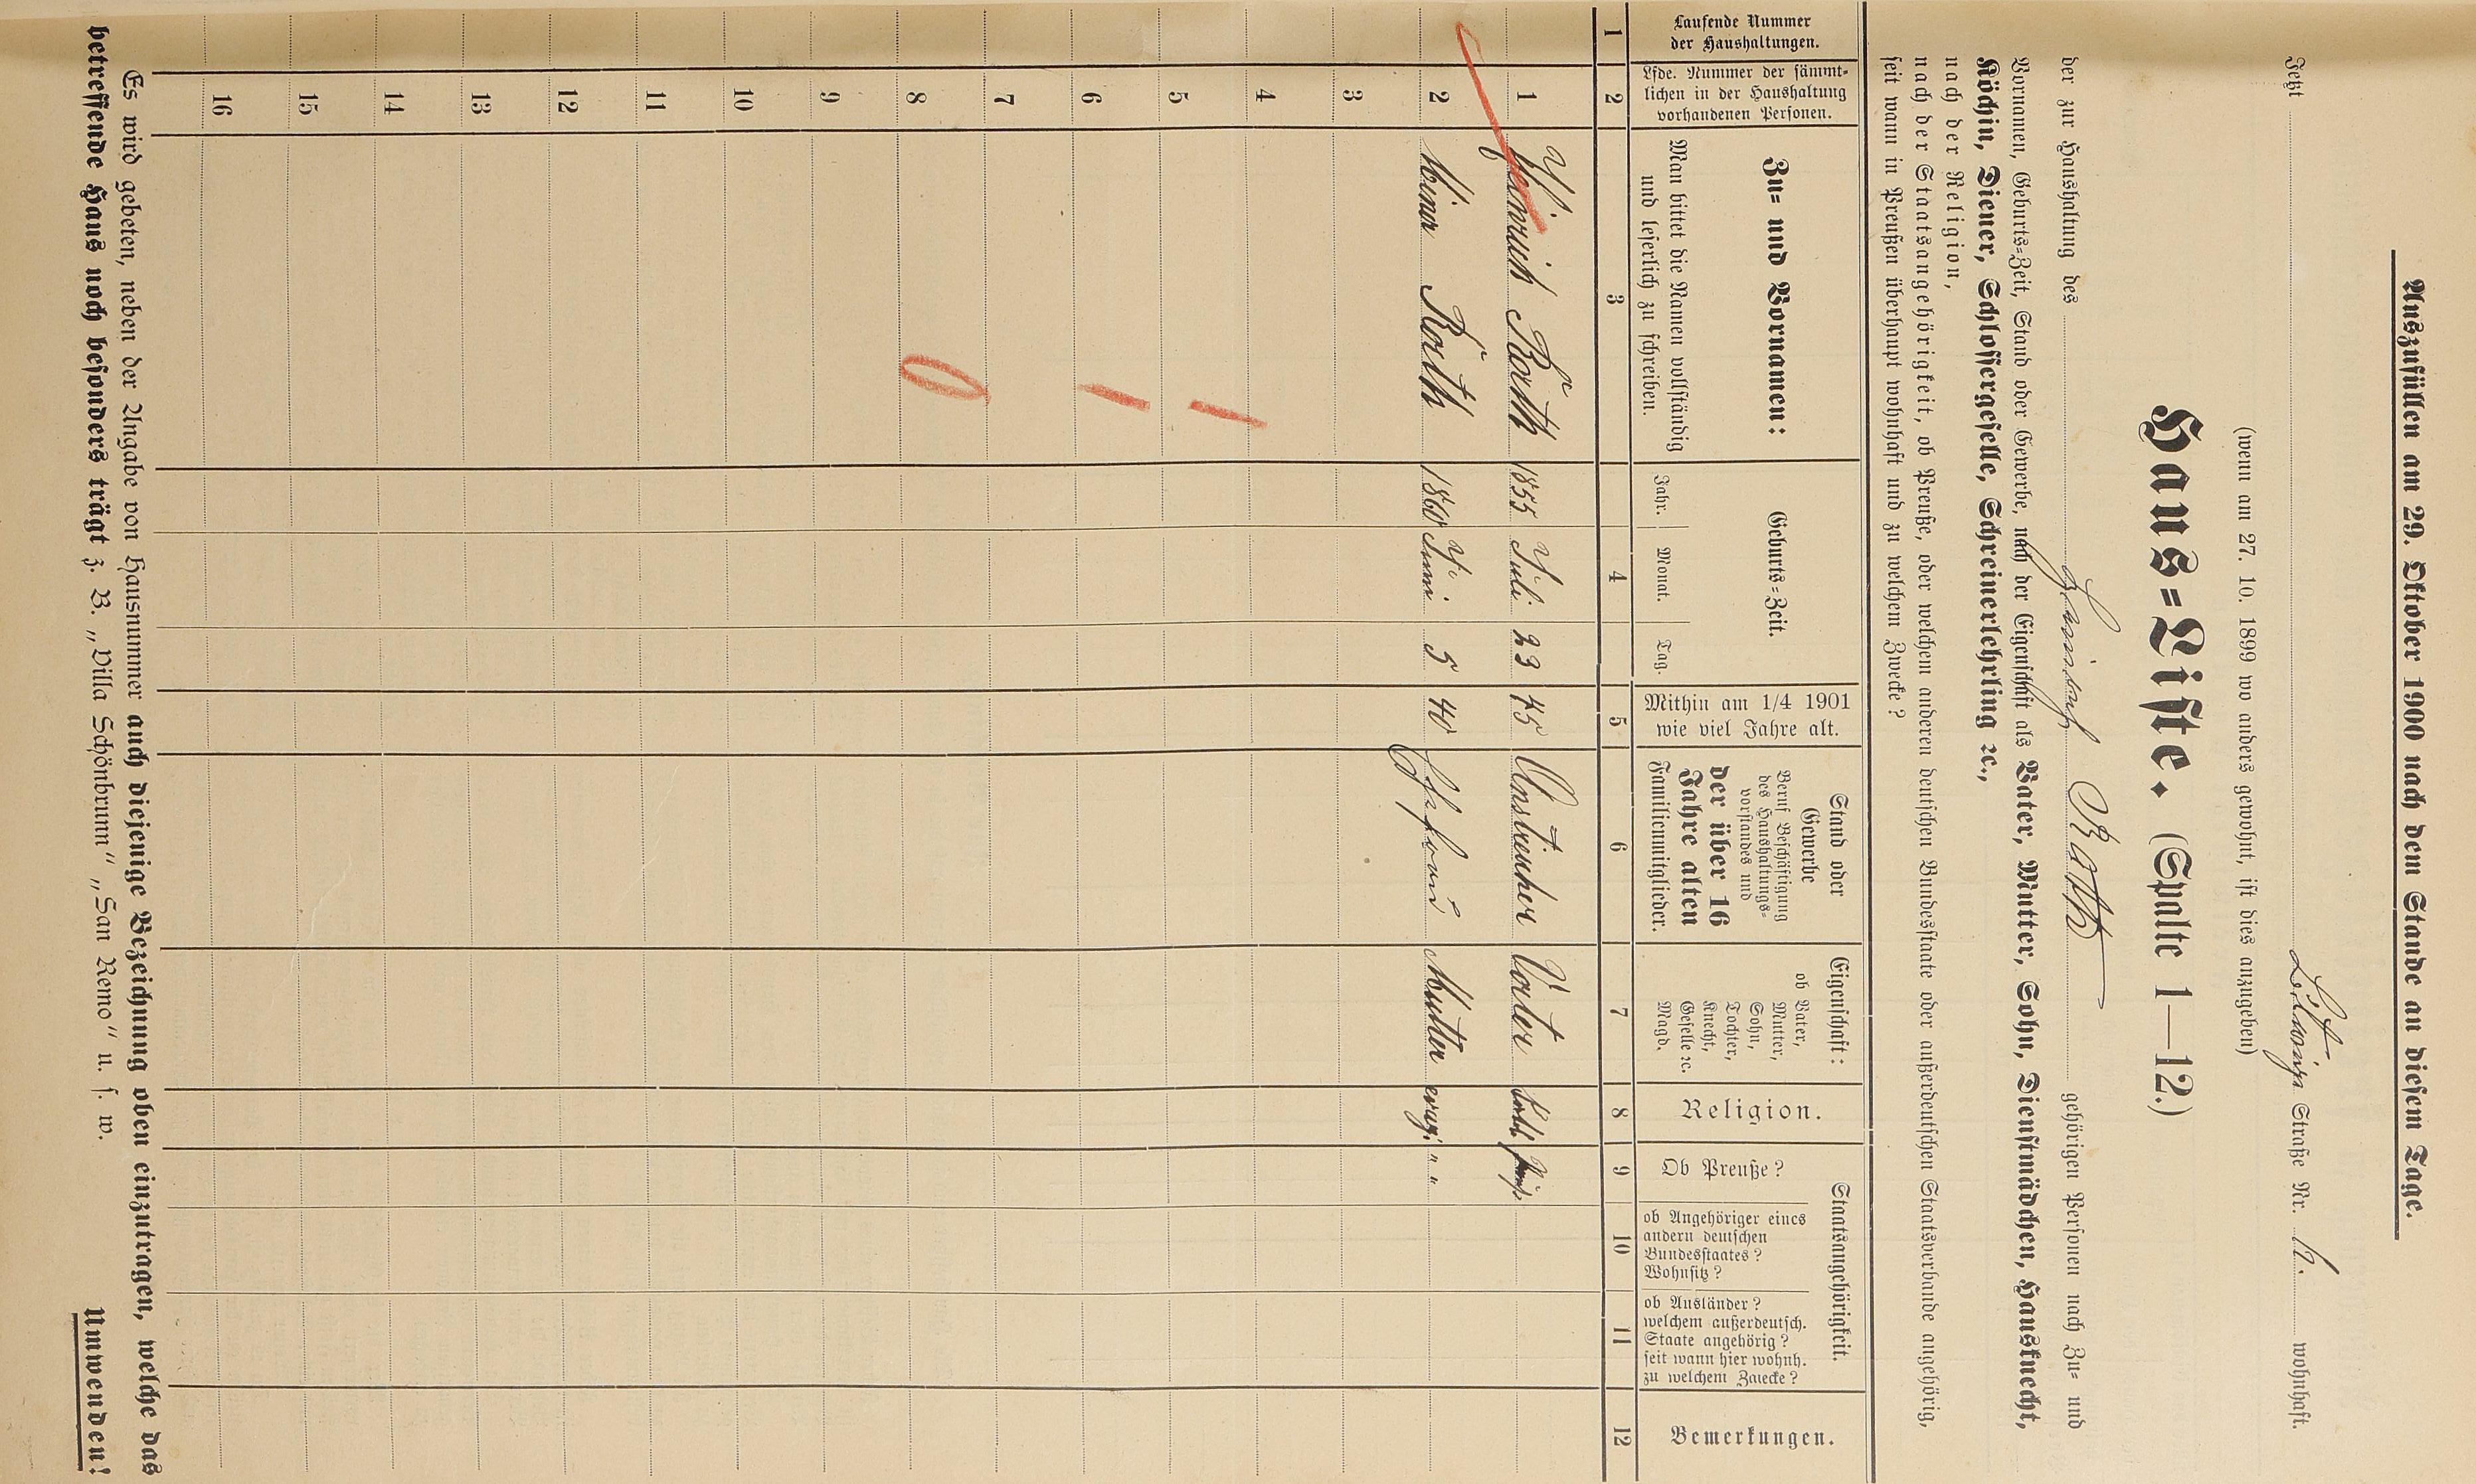 Auszufüllen am 29. Oktober 1900 nach dem Stande an diesem Tage.
Jetzt Straße Nr. wohnhaft.
(wenn am 27. 10. 1899 wo anders gewohnt, ist dies anzugeben)
Haus=Liste. (Spalte 1—12.)
der zur Haushaltung des Heinrich Roth gehörigen Personen nach Zu= und
Vornamen, Geburts=Zeit, Stand oder Gewerbe, nach der Eigenschaft als Vater, Mutter, Sohn, Dienstmädchen, Hausknecht,
Köchin, Diener, Schlossergeselle, Schreinerlehrling ꝛc.,
nach der Religion,
nach der Staatsangehörigkeit, ob Preuße, oder welchem anderen deutschen Bundesstaate oder außerdeutschen Staatsverbande angehörig,
seit wann in Preußen überhaupt wohnhaft und zu welchem Zwecke?
Laufende Nummer
der Haushaltungen.
Lfde. Nummer der sämmt-
lichen in der Haushaltung
vorhandenen Personen.
Zu= und Vornamen:
Man bittet die Namen vollständig
und leserlich zu schreiben.
Geburts=Zeit.
Jahr. Monat. Tag.
Mithin am 1/4 1901
wie viel Jahre alt.
Stand oder
Gewerbe
Beruf Beschäftigung
des Haushaltungs-
vorstandes und
der über 16
Jahre alten
Familienmitglieder.
Eigenschaft:
ob Vater,
Mutter,
Sohn,
Tochter,
Knecht,
Geselle ꝛc.
Magd.
Religion.
Staatsangehörigkeit.
Ob Preuße?
ob Angehöriger eines
andern deutschen
Bundesstaates?
Wohnsitz?
ob Ausländer?
welchem außerdeutsch.
Staate angehörig?
seit wann hier wohnh.
zu welchem Zwecke?
Bemerkungen.
1 2 3 4 5 6 7 8 9 10 11 12
1 Heinrich Roth 1855 Juli 23 45 Anstreicher Vater kath. Preuß.
2 Mina Roth 1860 Juni 5 40 Ehefrau Mutter evug. " "
3
4
5
6
7
8
9
10
11
12
13
14
15
16
Es wird gebeten, neben der Angabe von Hausnummer auch diejenige Bezeichnung oben einzutragen, welche das
betreffende Haus noch besonders trägt z. B. „Villa Schönbrunn" „San Remo" u. s. w.
Umwenden!